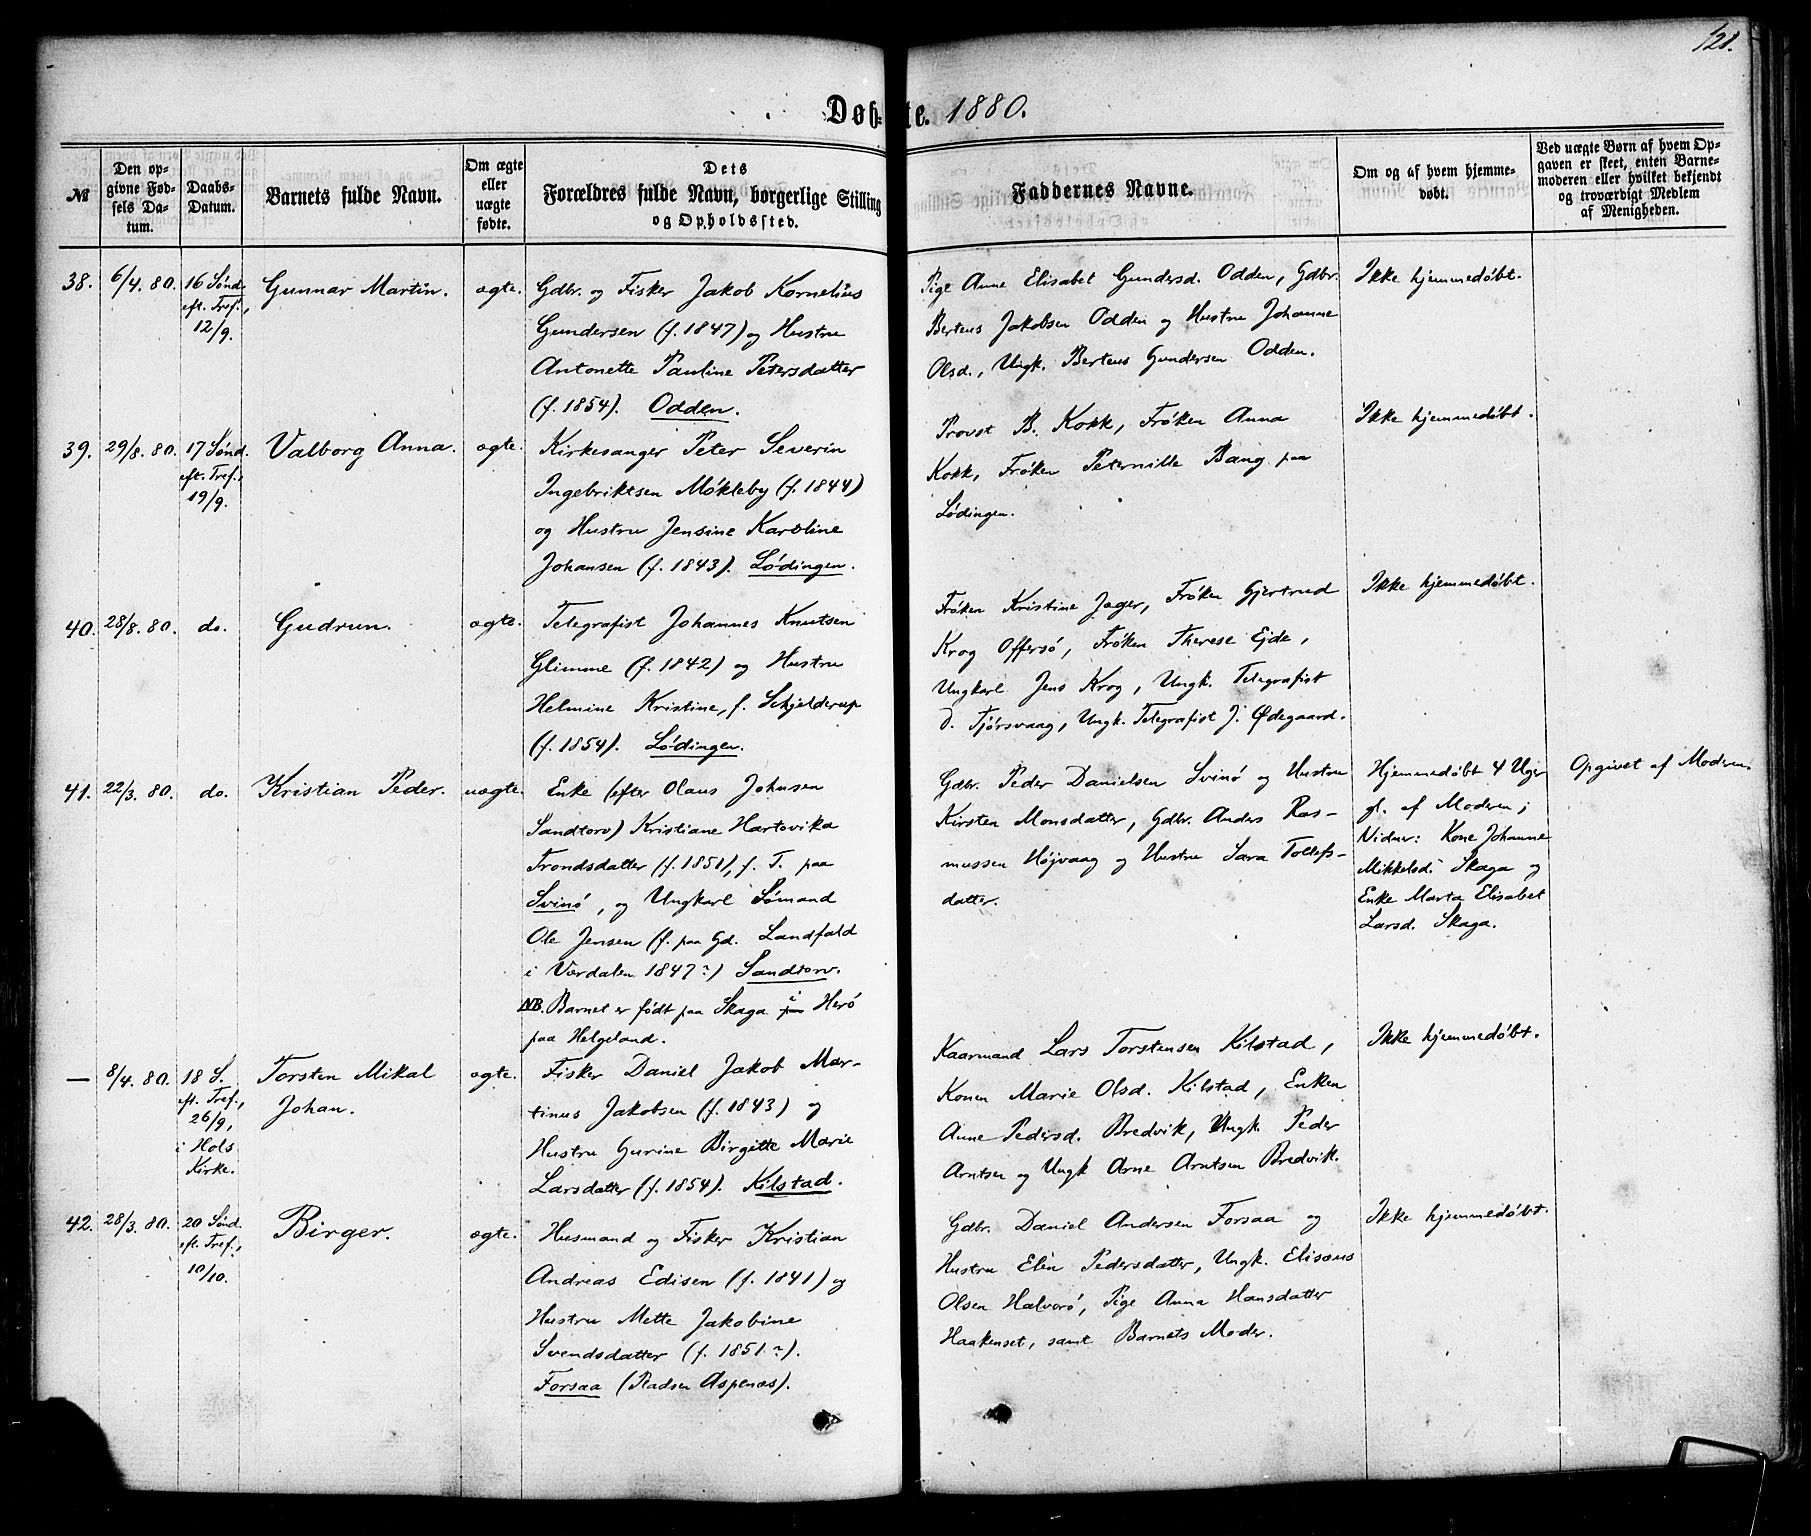 121.
Døbte. 1880.
№
Den op-
givne Fød-
sels Da-
tum.
Daabs-
Datum.
Barnets fulde Navn.
Om ægte
eller
uægte
fødte.
Dets
Forældres fulde Navn, borgerlige Stilling
og Opholdssted.
Faddernes Navne.
Om og af hvem hjemme-
døbt.
Ved uægte Børn af hvem Op-
gaven er skeet, enten Barne-
moderen eller hvilket bekjendt
og troværdigt Medlem
af Menigheden.
38.
6/4. 80.
16 Sønd.
eft. Tref.,
12/9.
Gunnar Martin.
ægte.
Gdbr. og Fisker Jakob Kornelius
Gundersen (f. 1847) og Hustru
Antonette Pauline Petersdatter
(f. 1854). Odden.
Pige Anne Elisabet Gundersd. Odden, Gdbr.
Berteus Jakobsen Odden og Hustru Johanne
Olsd., Ungk. Berteus Gundersen Odden.
Ikke hjemmedøbt.
39.
29/8. 80.
17 Sønd.
eft. Tref.,
19/9.
Valborg Anna.
ægte.
Kirkesanger Peter Severin
Ingebriktsen Møkleby (f. 1844)
og Hustru Jensine Karoline
Johansen (f. 1843). Lødingen.
Provst B. Kokk, Frøken Anna
Kokk, Frøken Peternille Bang paa
Lødingen.
Ikke hjemmedøbt.
40.
28/8. 80.
do.
Gudrun.
ægte.
Telegrafist Johannes Knutsen
Glimme (f. 1842) og Hustru
Helmine Kristine, f. Schjelderup
(f. 1854). Lødingen.
Frøken Kristine Jæger, Frøken Gjertrud
Krog Offersø, Frøken Therese Ejde,
Ungkarl Jens Krog, Ungk. Telegrafist
D. Tjørsvaag, Ungk. Telegrafist J. Ødegaard.
Ikke hjemmedøbt.
41.
22/3. 80.
do.
Kristian Peder.
uægte.
Enke (efter Olaus Johnsen
Sandtorv) Kristiane Hartovika
Trondsdatter (f. 1851), f. T. paa
Svinø, og Ungkarl Sømand
Ole Jensen (f. paa Gd. Landfald
i Værdalen 1847?) Sandtorv.
NB. Barnet er født paa Skaga i Herø
paa Helgeland.
Gdbr. Peder Danielsen Svinø og Hustru
Kirsten Monsdatter, Gdbr. Anders Ras-
mussen Højvaag og Hustru Sara Tollefs-
datter.
Hjemmedøbt 4 Uger
gl. af Moderen;
Vidner: Kone Johanne
Mikkelsd. Skaga og
Enke Marta Elisabet
Larsd. Skaga.
Opgivet af Moderen.
—
8/4. 80.
18 S.
eft. Tref.,
26/9,
i Hols
Kirke.
Torsten Mikal
Johan.
ægte.
Fisker Daniel Jakob Mar-
tinus Jakobsen (f. 1843) og
Hustru Gurine Birgitte Marie
Larsdatter (f. 1854). Kilstad.
Kaarmand Lars Torstensen Kilstad,
Konen Marie Olsd. Kilstad, Enken
Anne Pedersd. Bredvik, Ungk. Peder
Arntsen og Ungk Arne Arntsen Bredvik.
Ikke hjemmedøbt.
42.
28/3. 80.
20 Sønd.
eft. Tref.,
10/10.
Birger.
ægte.
Husmand og Fisker Kristian
Andreas Edisen (f. 1841) og
Hustru Mette Jakobine
Svendsdatter (f. 1851?).
Forsaa (Pladsen Aspenæs).
Gdbr. Daniel Andersen Forsaa og
Hustru Elen Pedersdatter, Ungk. Elisæus
Olsen Halvorø, Pige Anna Hansdatter
Haakenset, samt Barnets Moder.
Ikke hjemmedøbt.